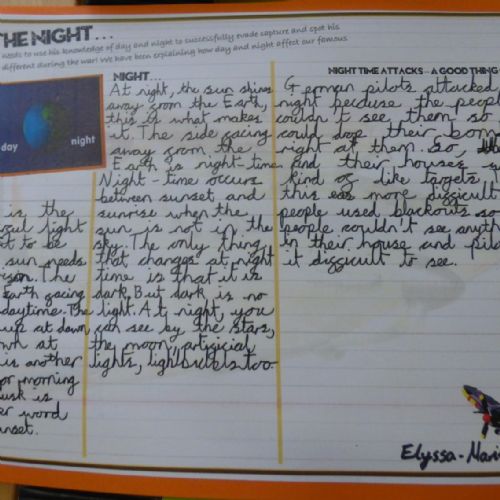 THE NIGHT...
needs to use his knowledge of day and night to successfully evade capture and spot his
different during the war! We have been explaining how day and night affect our famous
day
night
is the
ful light
t to be
sun needs
The
Earth facing
daytime. The
up at dawn
wn at
is another
or morning
usk is
er word
nset.
NIGHT...
At night, the sun shines
away from the Earth,
this is what makes
it. The side facing
away from the
Earth is night-time
Night-time occurs
between sunset and
sunrise when the
sun is not in the
sky. The only thing
that changes at night
time is that it is
dark, But dark is no
light. At night, you
can see by the stars,
the moon, artificial
lights, lightbulbs too.
NIGHT TIME ATTACKS... A GOOD THING
German pilots attacked
night because the peop
couldn't see them so
could drop their bom
right at them. So
and their houses
kind of like targets
this as more difficult
people used blackouts so
people couldn't see anyth
in their house and pil
it difficult to see.
Elyssa-Mari